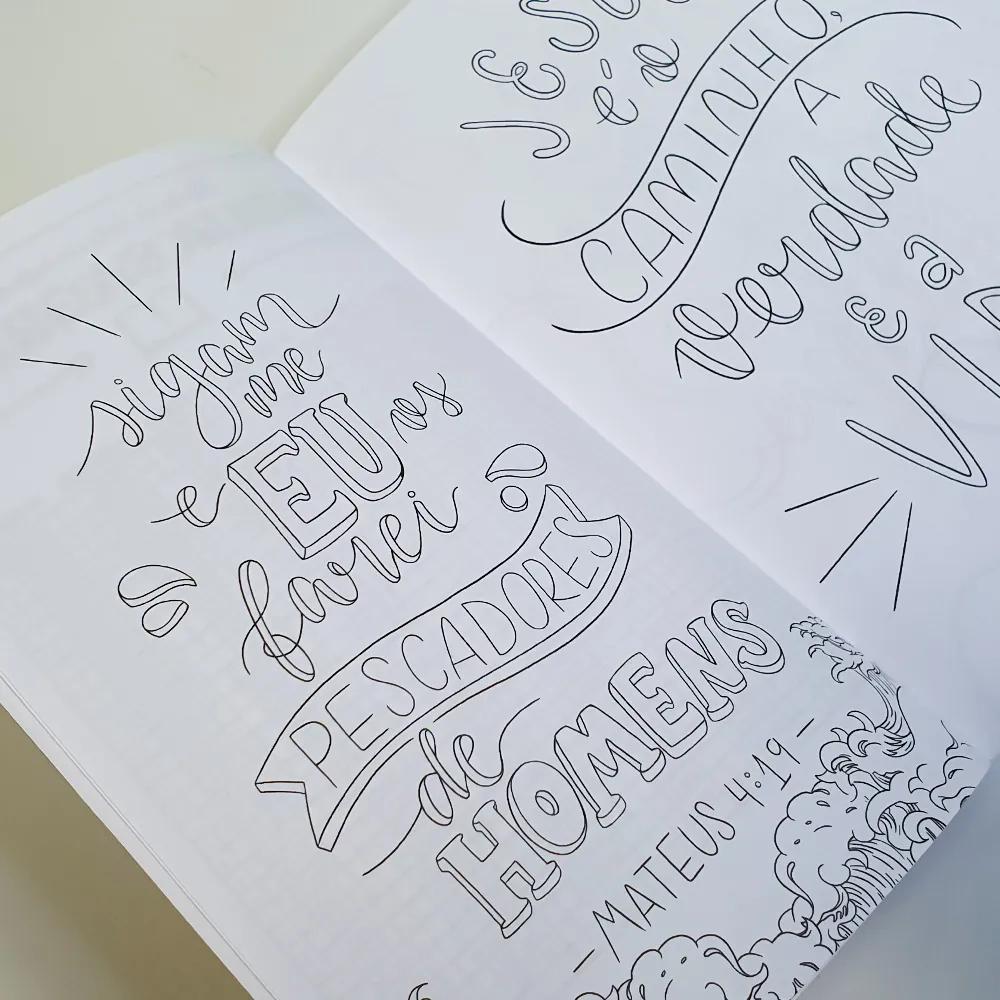 sigam
me
e EU os
farei
PESCADORES
de
HOMENS
- MATEUS 4:19 -
é o
CAMINHO,
A
verdade
e a